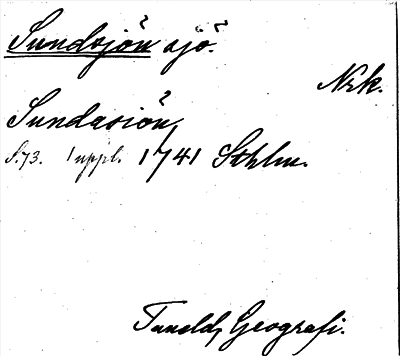 Sundsjön sjö.
Nrk.
Sundasiön,
S.73. 1 uppl. 1741 Sthlm.
Tuneld, Geografi.